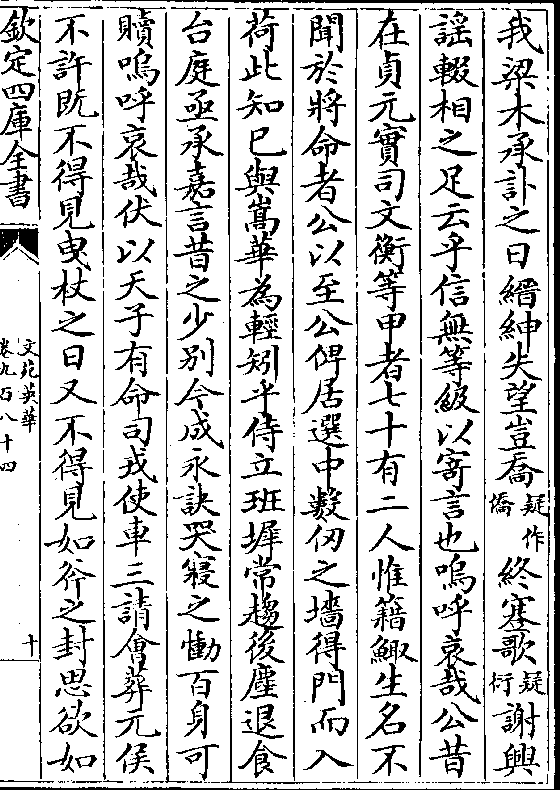 我梁木承訃之日縉紳失望豈喬疑作僑終寋歌疑衍謝興
謡輟相之足云乎信無等級以寄言也嗚呼哀哉公昔
在貞元實司文衡等甲者七十有二人惟籍鯫生名不
聞於將命者公以至公俾居選中數仞之墻得門而入
荷此知已與嵩華為輕矧乎侍立班墀常趨後塵退食
台庭亟承嘉言昔之少別今成永訣哭寢之慟百身可
贖嗚呼哀哉伏以天子有命司戎使車三請會葬元侯
不許既不得見曳杖之日又不得見如斧之封思欲如
欽定四庫全書
文苑英華
卷九百八十四
十